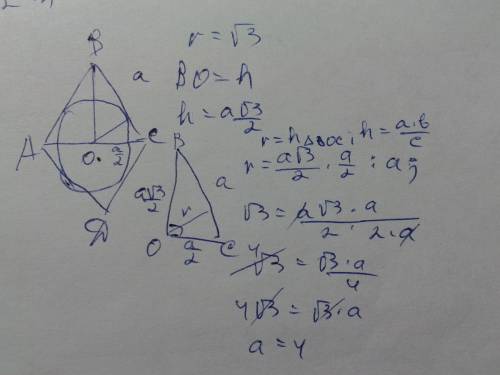 r = √3
B
a
BO = h
h = a√3/2
A
C
O
a/2
D
r = h△BOC; h = a·b/c
r = a√3/2 · a/2 : a;
B
a√3/2
a
r
O
a/2
C
√3 = a√3·a / 2·2·a
4
√3 = √3·a/4
4√3 = √3·a
a = 4